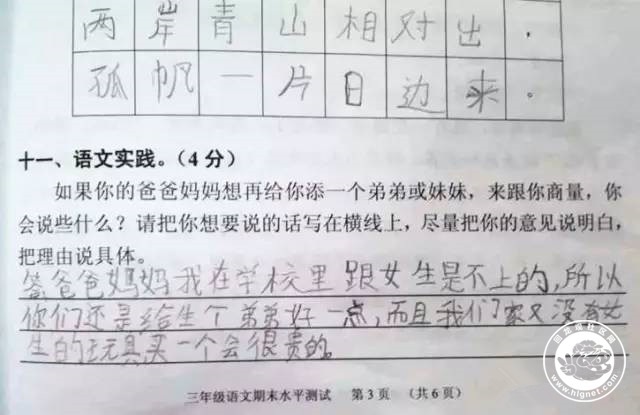 两岸青山相对出，
孤帆一片日边来。
十一、语文实践。（4 分）
如果你的爸爸妈妈想再给你添一个弟弟或妹妹，来跟你商量，你
会说些什么？请把你想要说的话写在横线上，尽量把你的意见说明白，
把理由说具体。
答爸爸妈妈我在学校里跟女生是不上的，所以
你们还是给生个弟弟好一点，而且我们家又没有女
生的玩具买一个会很贵的。
三年级语文期末水平测试 第 3 页 （共 6 页）
www.hlgnet.com